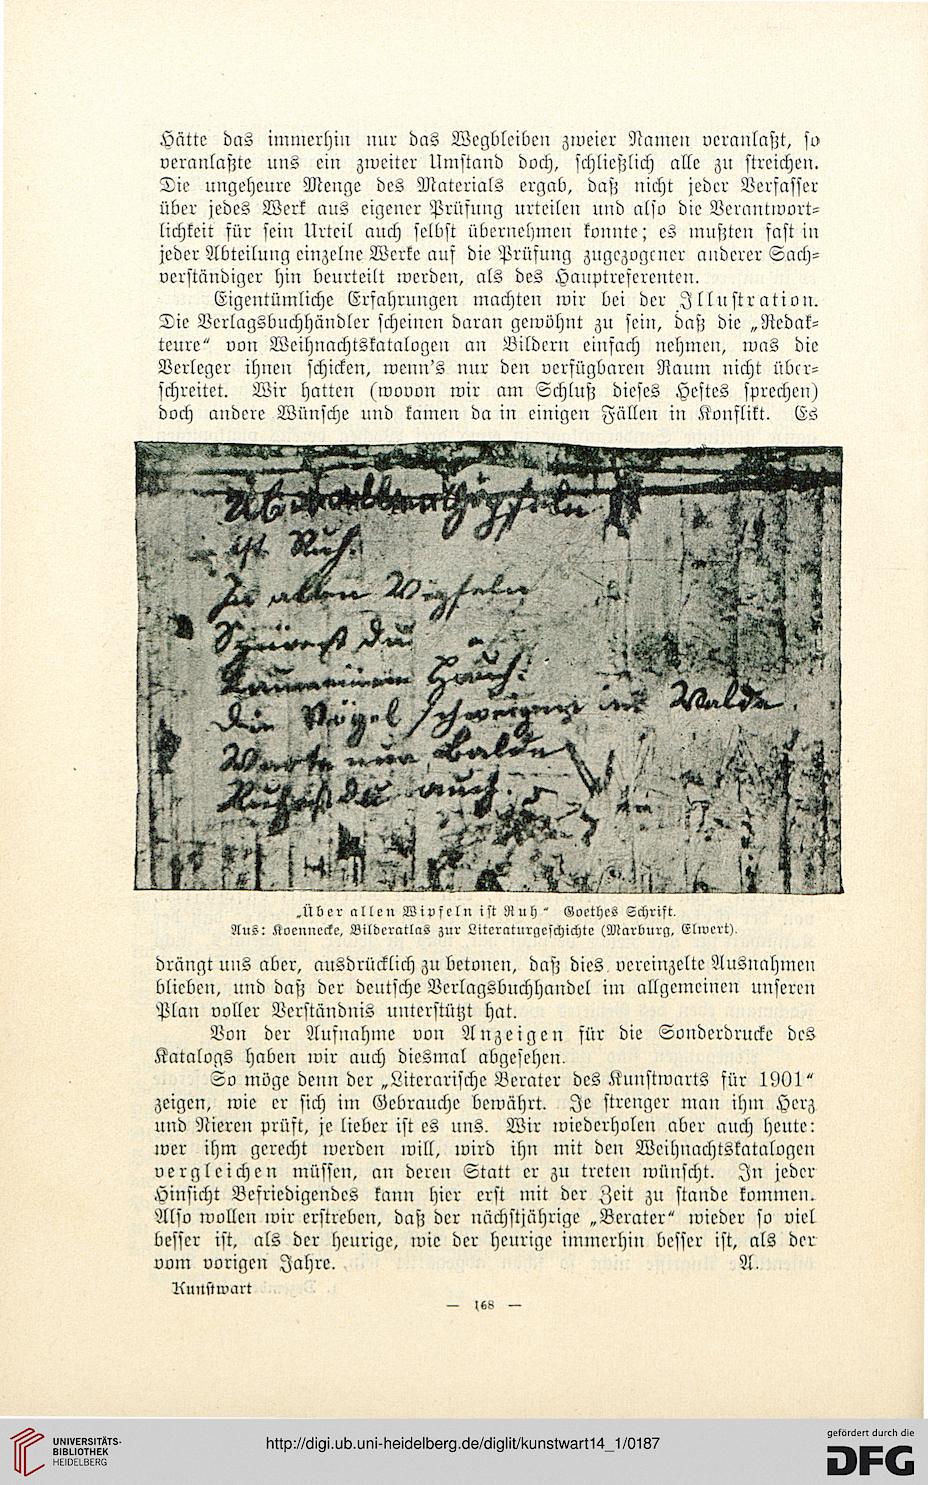 Hätte das immerhin nur das Wegbleiben zweier Namen veranlaßt, so
veranlaßte uns ein zweiter Umstand doch, schließlich alle zu streichen.
Die ungeheure Menge des Materials ergab, daß nicht jeder Verfasser
über jedes Werk aus eigener Prüfung urteilen und also die Verantwort-
lichkeit für sein Urteil auch selbst übernehmen konnte; es mußten fast in
jeder Abteilung einzelne Werke auf die Prüfung zugezogener anderer Sach-
verständiger hin beurteilt werden, als des Hauptreferenten.
Eigentümliche Erfahrungen machten wir bei der Illustration.
Die Verlagsbuchhändler scheinen daran gewöhnt zu sein, daß die „Redak-
teure“ von Weihnachtskatalogen an Bildern einfach nehmen, was die
Verleger ihnen schicken, wenn's nur den verfügbaren Raum nicht über-
schreitet. Wir hatten (wovon wir am Schluß dieses Heftes sprechen)
doch andere Wünsche und kamen da in einigen Fällen in Konflikt. Es
Ueber allen Gipfeln
ist Ruh.
In allen Wipfeln
Spürest du
Kaum einen Hauch.
Die Vögel schweigen im Walde.
Warte nur balde
Ruhest du auch.
„Über allen Wipfeln ist Ruh“ Goethes Schrift.
Aus: Koennecke, Bilderatlas zur Literaturgeschichte (Marburg, Elwert).
drängt uns aber, ausdrücklich zu betonen, daß dies vereinzelte Ausnahmen
blieben, und daß der deutsche Verlagsbuchhandel im allgemeinen unseren
Plan voller Verständnis unterstützt hat.
Von der Aufnahme von Anzeigen für die Sonderdrucke des
Katalogs haben wir auch diesmal abgesehen.
So möge denn der „Literarische Berater des Kunstwarts für 1901“
zeigen, wie er sich im Gebrauche bewährt. Je strenger man ihm Herz
und Nieren prüft, je lieber ist es uns. Wir wiederholen aber auch heute:
wer ihm gerecht werden will, wird ihn mit den Weihnachtskatalogen
vergleichen müssen, an deren Statt er zu treten wünscht. In jeder
Hinsicht Befriedigendes kann hier erst mit der Zeit zu stande kommen.
Also wollen wir erstreben, daß der nächstjährige „Berater“ wieder so viel
besser ist, als der heurige, wie der heurige immerhin besser ist, als der
vom vorigen Jahre. A.
Kunstwart
— 168 —
UNIVERSITÄTS-
BIBLIOTHEK
HEIDELBERG
http://digi.ub.uni-heidelberg.de/diglit/kunstwart14_1/0187
gefördert durch die
DFG